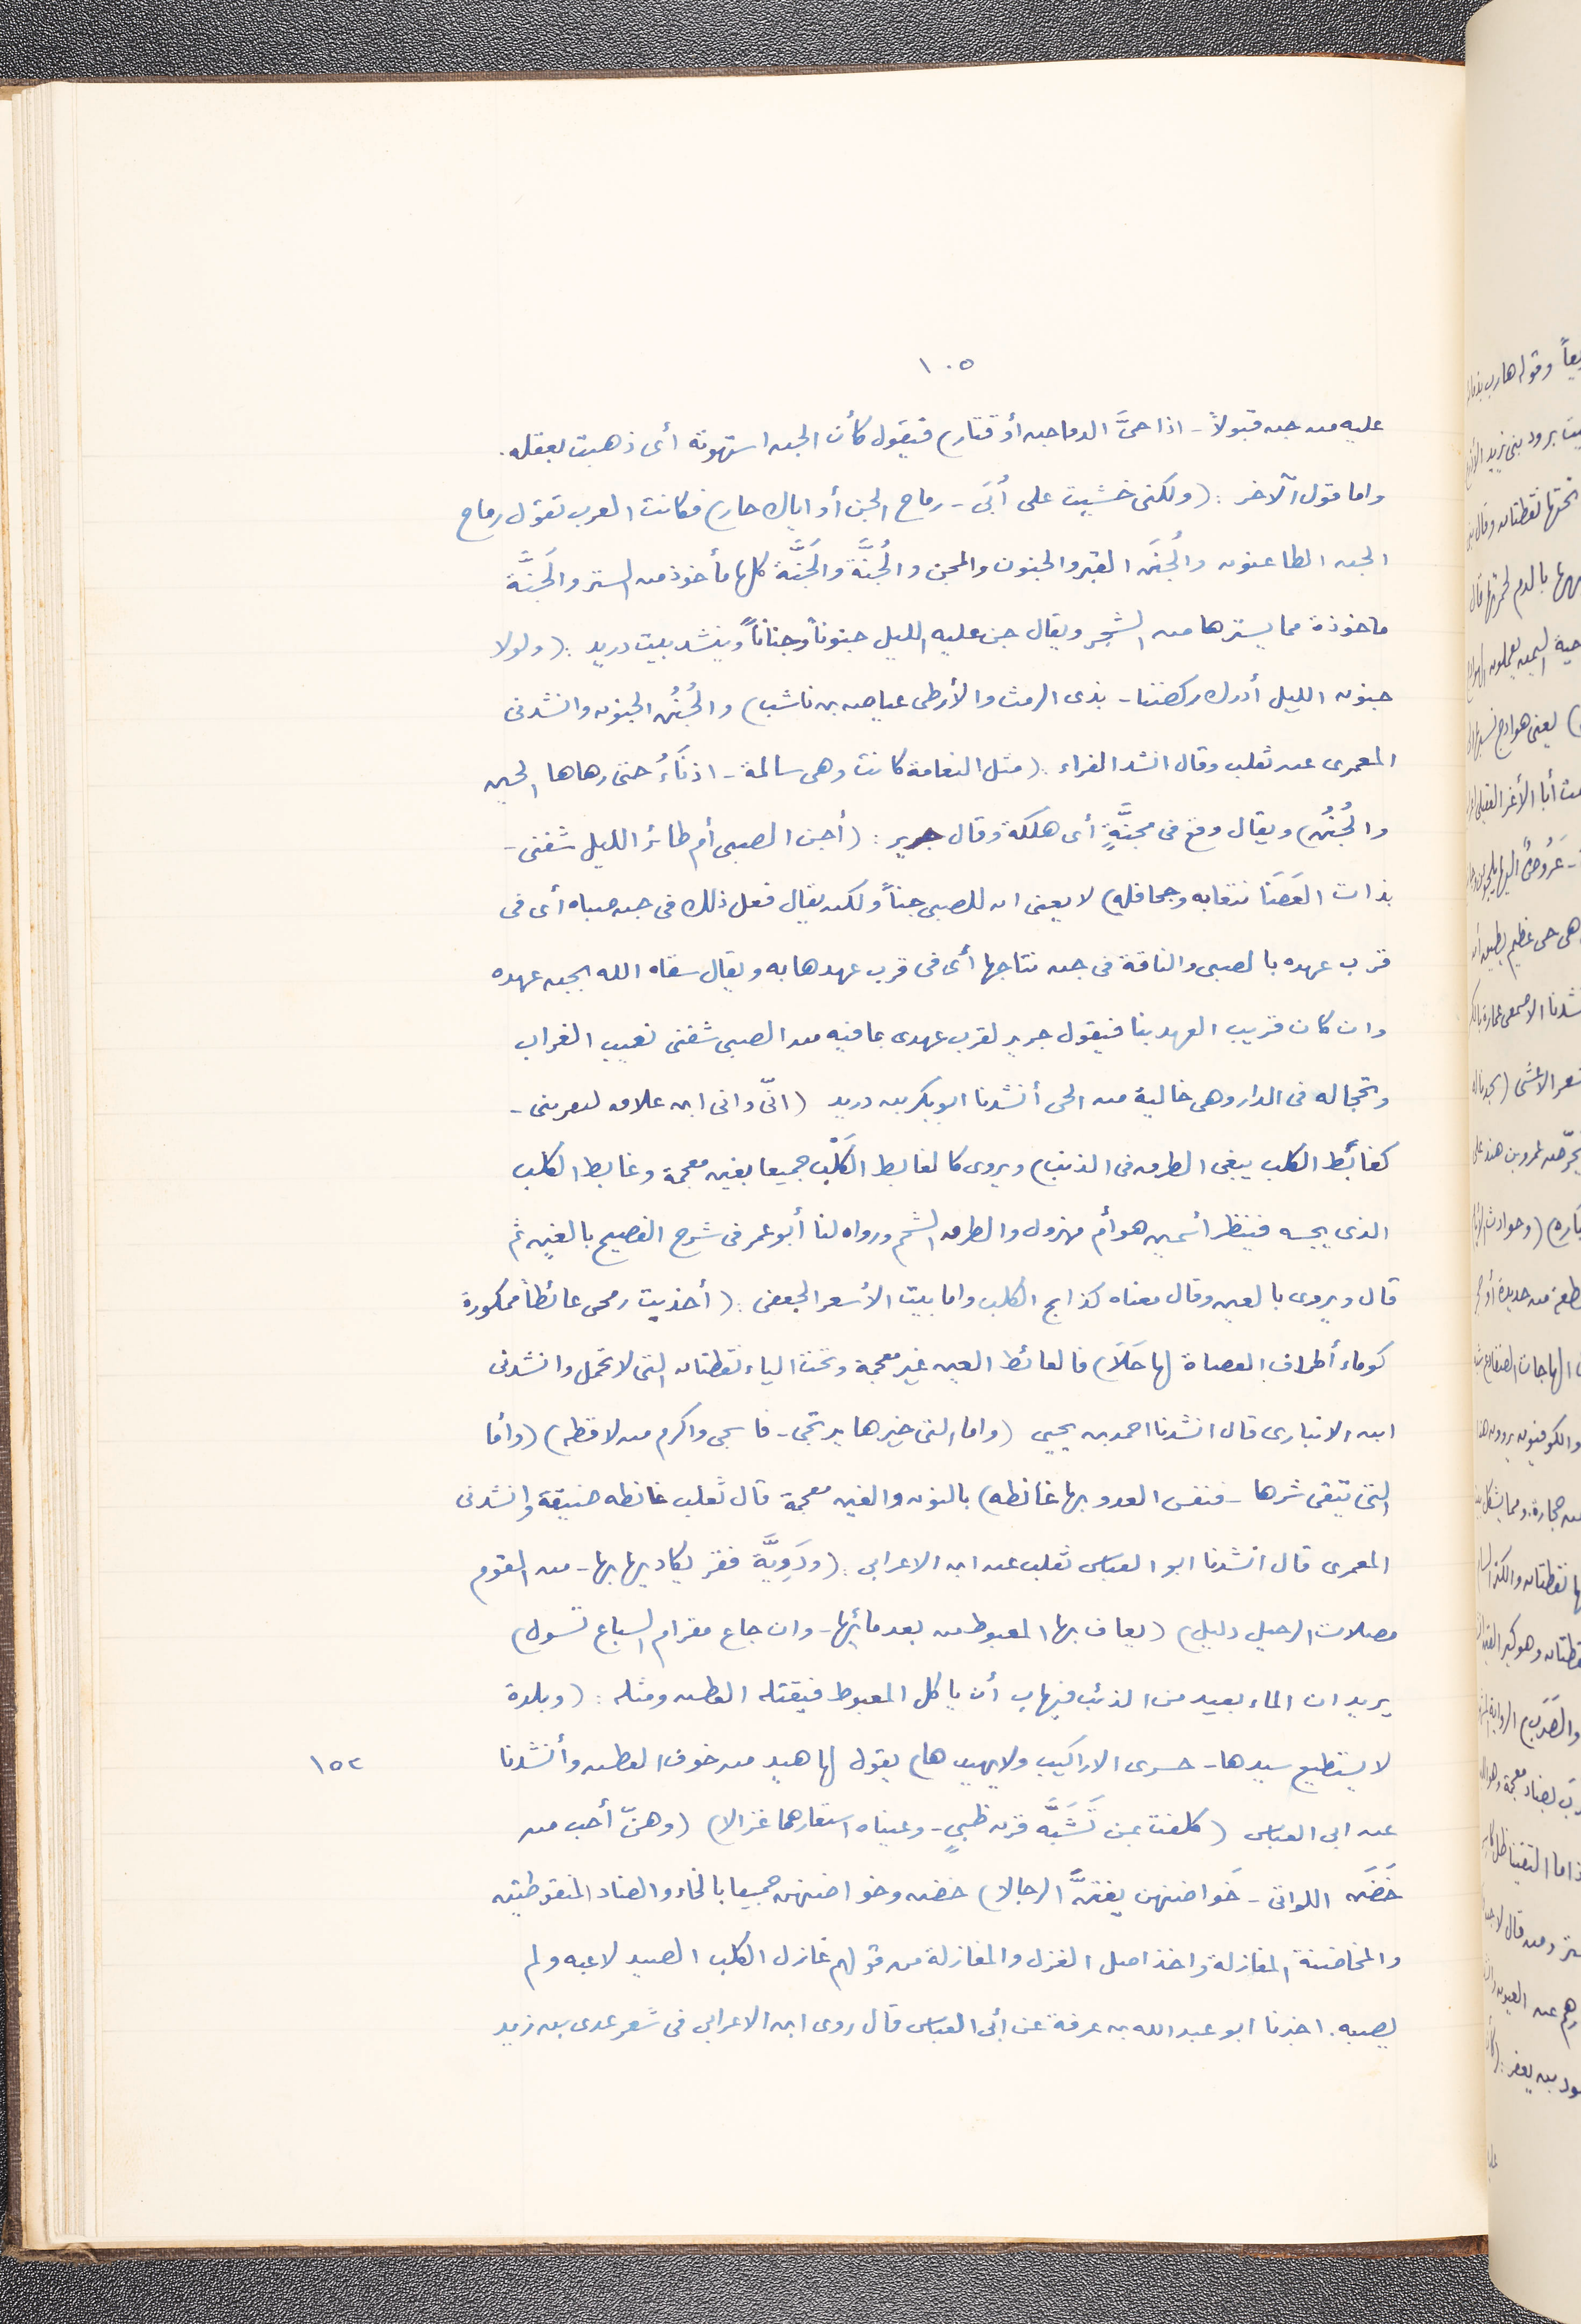 ١٠٥
عليه من جن قبولاً - اذا حمَّ الدماجن أو قتار) فيقول كأن الجن استهوته أى ذهبت بعقله.
واما قول الآخر : (ولكنى خشيت على أُبَىّ - رماح الجن أو اياك حار) فكانت العرب تقول رماح
الجن الطاعون والجُنَن القبر والجنون والمجن والجُنَّة والجَنَّة كلها مأخوذ من الستر والجَنَّة
ماخوذة مما يسترها من الشجر ويقال جن عليه الليل جنوناً وجناناً وينشد بيت دريد : (ولولا
جنون الليل أدرك ركضنا - بذى الرمث والأرطى عياض بن ناشب) والجُنُن الجنون وانشدنى
المعمرى عن ثعلب وقال انشد الفراء : (مثل النعامة كانت وهى سالمة - اذناءُ حتى زهاها الحين
والجُنُن) ويقال وقع فى مجنَّةٍ أى هلكة وقال جرير : (أجن الصبى أم طائر الليل شفنى -
بذات الغَضَا نتقابه وجحافله) لا يعنى ان للصبى جناً ولكن يقال فعل ذلك فى جن صباه أى فى
قرب عهده بالصبى والناقة فى جن نتاجها أى فى قرب عهدها به ويقال سقاه الله بجن عهده
وان كان قريب العهد بنا فيقول جرير لقرب عهدى بما فيه من الصبى شفنى نعيب الغراب
وتحجاله فى الدار وهى خالية من الحى أنشدنا ابو بكر بن دريد (انّى وانى ابن علاق ليقرينى -
كغابط الكلب يبغى الطرق فى الذنب) ويروى كالغابط الكَلْب جميعا بغين معجمة وغابط الكلب
الذى يجسه فينظر أسمين هو أم مهزول والطرق الشحم ورواه لنا أبو عمر فى شرح الفصيح بالغين ثم
قال ويروى بالعين وقال معناه كذابح الكلب واما بيت الأسعر الجعفى : (أخذيت رمحى عائطاً ممكورة
كوماء أطراف العضاة لها حَلَا) فالعائط العين غير معجمة وتحت الياء نقطتان التى لا تحمل وانشدنى
ابن الانبارى قال انشدنا احمد بن يحيى (واما التى خيرها يرتجى - فاسمى واكرم من لافظه) (وأما
التى يتقى شرها - فنفس العدو بها غانظه) بالنون والغين معجمة قال ثعلب غانظه ضيقة وانشدنى
المعمرى قال انشدنا ابو العباس ثعلب عن ابن الاعرابى : (ودَوِيَّة قفر يكاد يهابها - من القوم
مصلات الرحيل دليل) (يعاف بها المعبوط من بعد مائها - وان جاع مقرام السباع نسول)
يريد ان الماء بعيد من الذئب فيهاب أن ياكل المعبوط فيقتله العطش ومثله : (وبلدة
لا يستطيع سيدها - حسرى الاراكيب ولا يهيدها) يقول لها هيد من خوف العطش وأنشدنا
١٥٢
عن ابى العباس (كلفت بمن تَشَبَّه قرن ظبىٍ - وعيناه استعارهما غزالا) (وهنّ أحب من
خَضَن اللواتى - خَواضنهن يفتنَّ الرجالا) خضن وخواضنهن جميعا بالخاء والضاد المنقوطتين
والمخاضنة المغازلة واخذ اصل الغزل والمغازلة من قولهم غازل الكلب الصيد لاعبه ولم
يصبه. اخبرنا ابو عبدالله بن عرفة عن أبى العباس قال روى ابن الاعرابى فى شعر عدى بن زيد